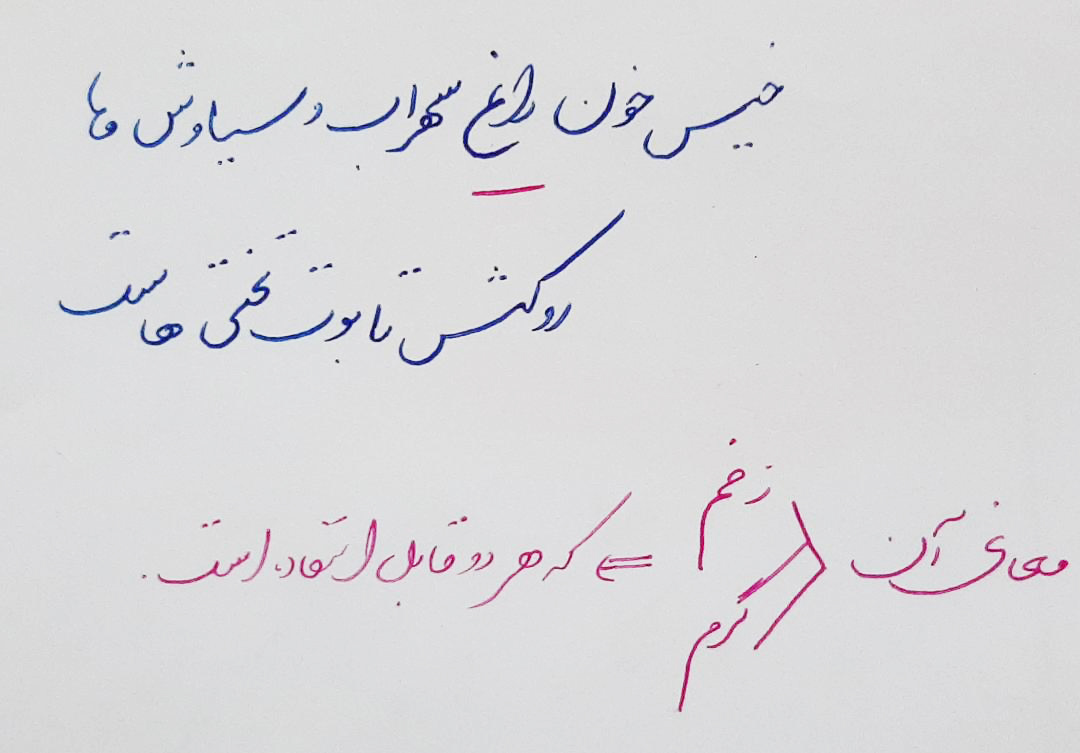 خیس خون داغ سهراب و سیاوش ها
روکش تابوت تختی هاست
زخم
معانی آن
که هر دو قابل استفاده است.
گرم